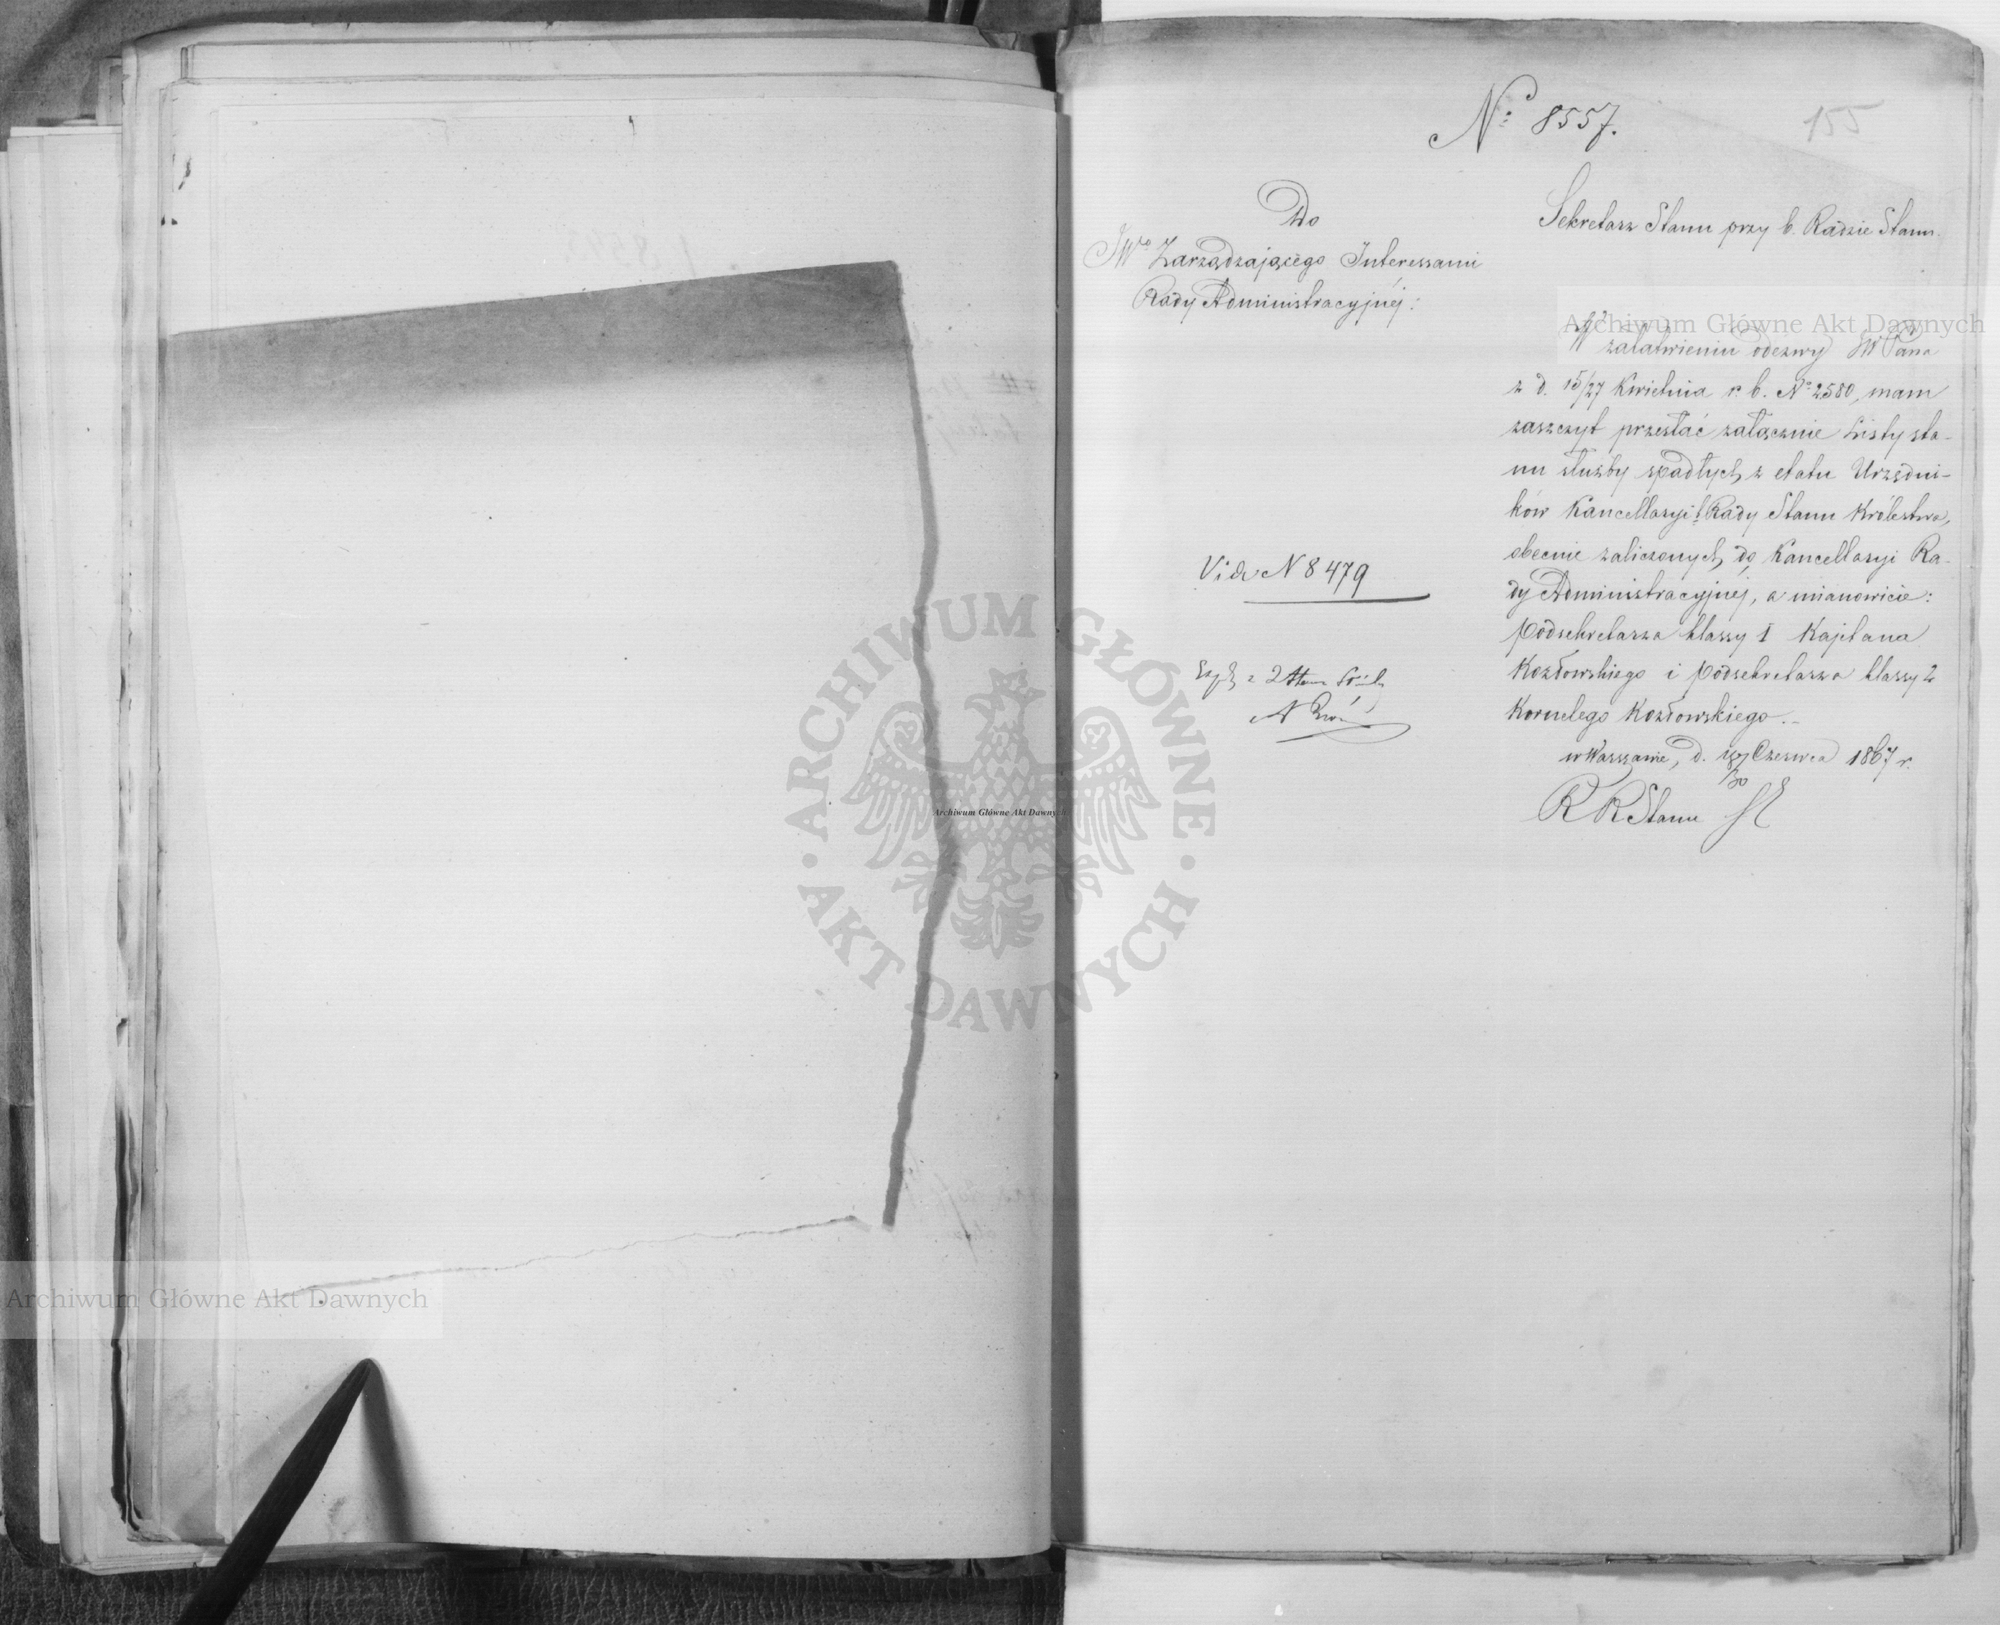 № 8557.
155
Do
JW° Zarządzającego Interessami
Rady Administracyjnéj:
Sekretarz Stanu przy b. Radzie Stanu.
W załatwieniu odezwy JW Pana
z d. 15/27 Kwietnia r. b. № 2580, mam
zaszczyt przesłać załącznie Listy sta-
nu służby spadłych z etatu Urzędni-
ków Kancellaryi b. Rady Stanu Królestwa,
obecnie zaliczonych do Kancellaryi Ra-
dy Administracyjnéj, a mianowicie:
Podsekretarza klassy I Kajetana
Kozłowskiego i Podsekretarza klassy 2
Kornelego Kozłowskiego.-
w Warszawie, d. Czerwca 1867 r.
R R Stanu
Vide N 8479
Archiwum Główne Akt Dawnych
Archiwum Główne Akt Dawnych
Archiwum Główne Akt Dawnych
ARCHIWUM GŁÓWNE · AKT DAWNYCH ·